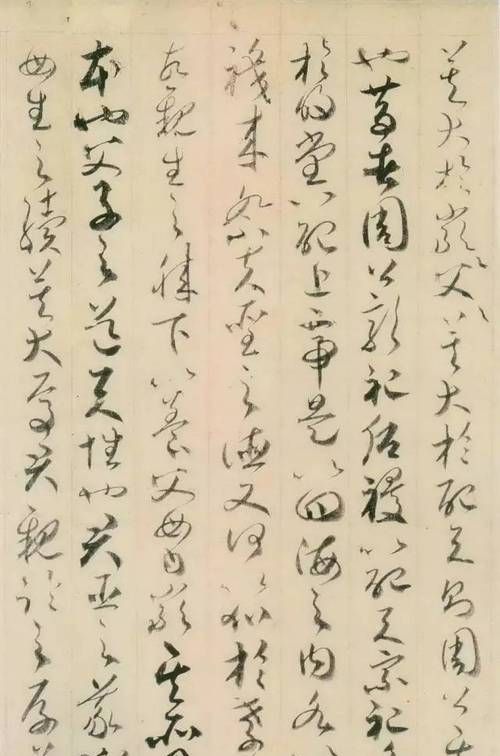 莫大於嚴〻父〻莫大於配天則周公其
也昔者周公郊祀后稷以配天宗祀
於明堂以配上帝是以四海之內各
職来祭夫聖之德又何以加於孝
故親生之膝下以養父母日嚴其所因
本也父子之道天性也君臣之義
母生之續莫大焉君親臨之厚莫